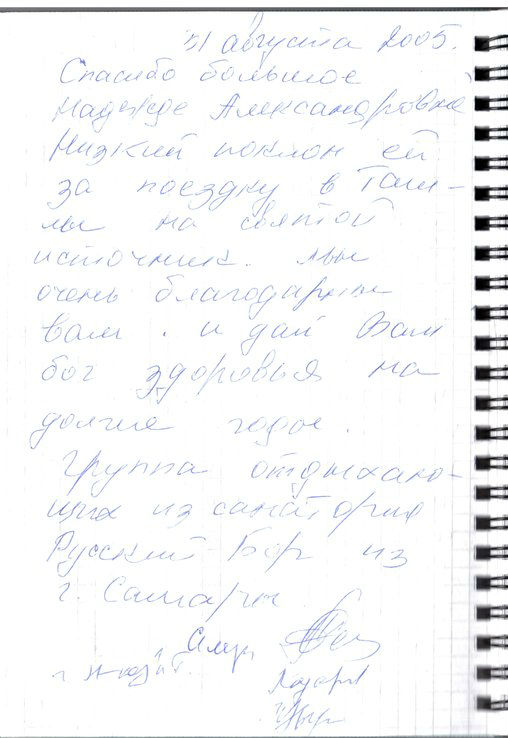 31 августа 2005.
Спасибо большое
Надежде Александровне
Низкий поклон ей
за поездку в Таш-
лы на святой
источник. мы
очень благодарны
вам. и дай Вам
бог здоровья на
долгие годы.
Группа отдыхаю-
щих из санатория
Русский Бор из
г. Самары